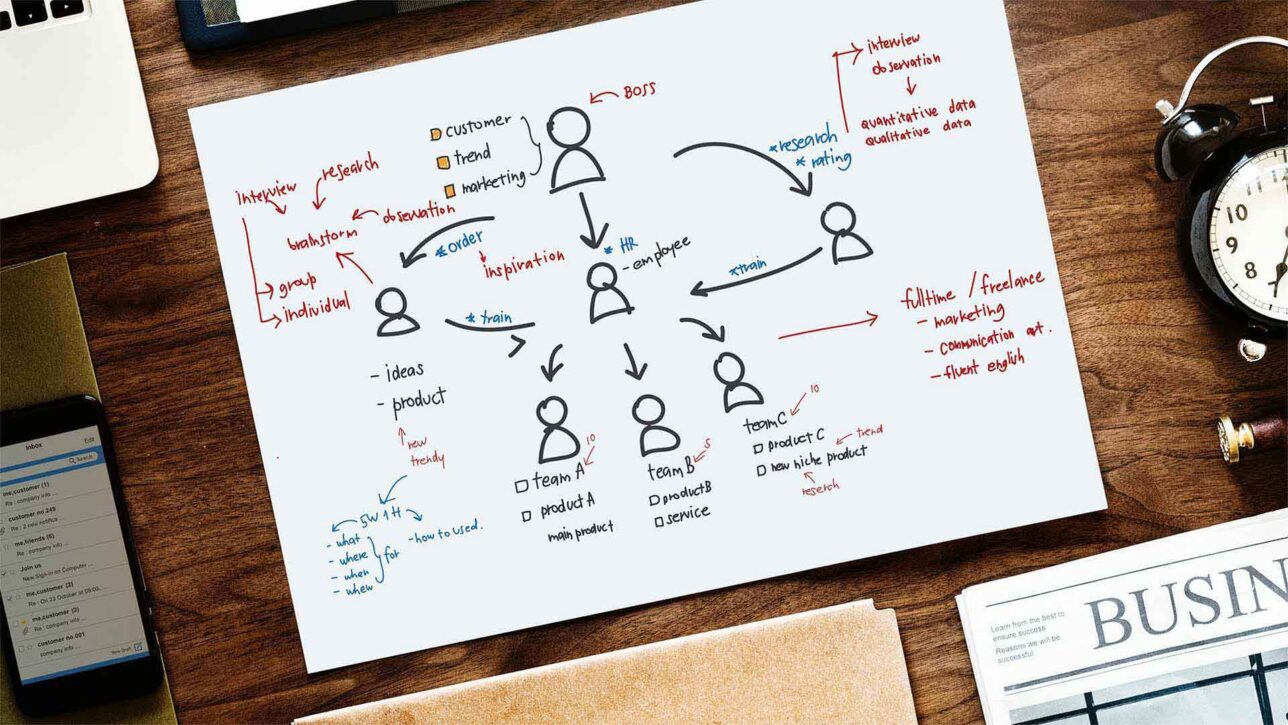 BOSS
customer
trend
marketing
interview
research
observation
brainstorm
group
individual
*order
inspiration
* HR
- employee
*research
* rating
interview
observation
quantitative data
qualitative data
*train
* train
- ideas
- product
new
trendy
5W1H
- what
- where
- when
- whew
for
- how to used.
10
team A
product A
main product
5
team B
product B
service
10
team C
product C
new niche product
trend
reserch
fulltime / freelance
- marketing
- communication
- fluent english
Inbox
Edit
Search
me,customer (1)
Re : company info ...
customer no.249
Re : 2 new notifica ...
me,friends (6)
Re : company info ...
Join us
New Sign-in on Computer ...
me,customer (2)
Re : On 23 October at 09:00,
me,customer (3)
Re : company info ...
customer no.001
company info ...
New Draft
10
9
8
Learn from the best to
ensure success
Reasons we will be
successful
BUSIN